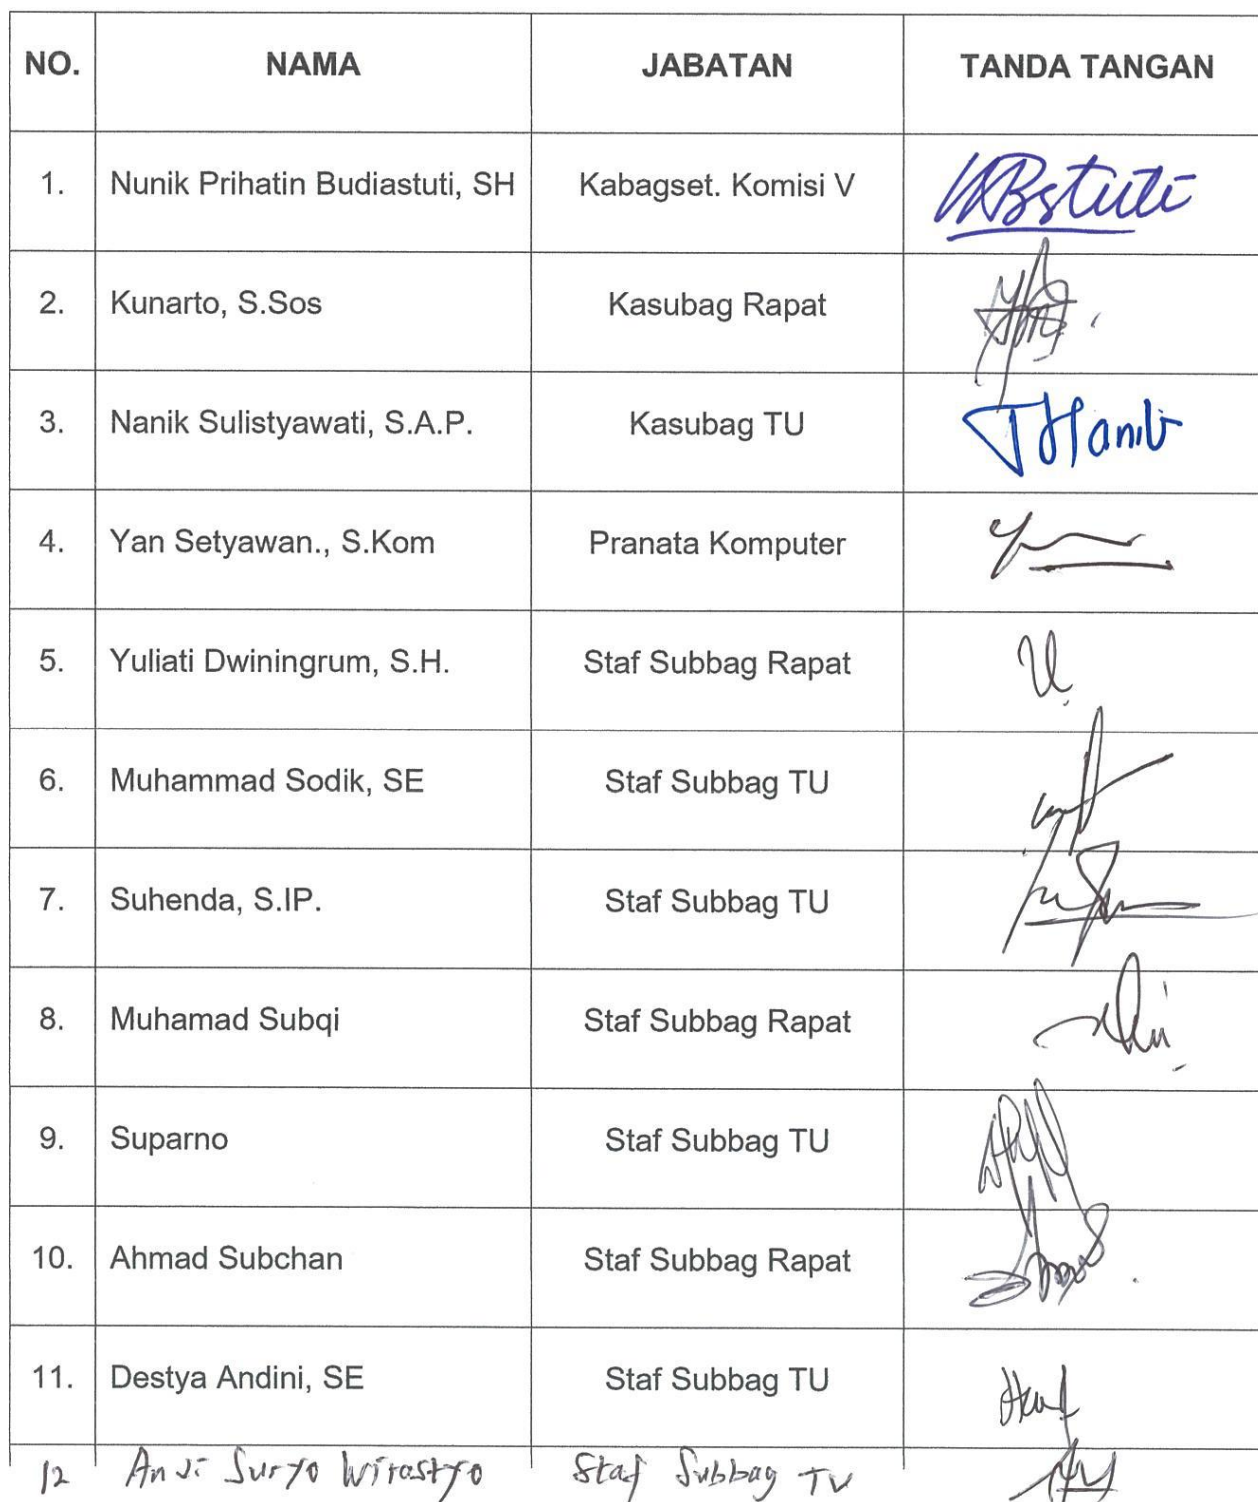 NO. NAMA JABATAN TANDA TANGAN
1. Nunik Prihatin Budiastuti, SH Kabagset. Komisi V
2. Kunarto, S.Sos Kasubag Rapat
3. Nanik Sulistyawati, S.A.P. Kasubag TU
4. Yan Setyawan., S.Kom Pranata Komputer
5. Yuliati Dwiningrum, S.H. Staf Subbag Rapat
6. Muhammad Sodik, SE Staf Subbag TU
7. Suhenda, S.IP. Staf Subbag TU
8. Muhamad Subqi Staf Subbag Rapat
9. Suparno Staf Subbag TU
10. Ahmad Subchan Staf Subbag Rapat
11. Destya Andini, SE Staf Subbag TU
12 Suryo Wirastyo Staf Subbag TU